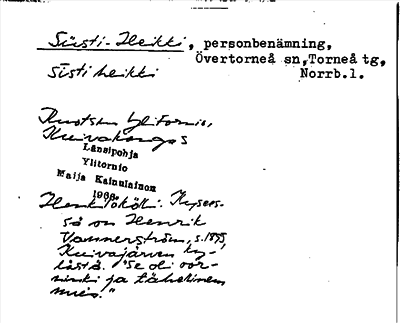 Süsti-Heikki, personbenämning,
Övertorneå sn, Torneå tg,
Norrb.l.
sīsti heikki
Ruotsin Ylitornio,
Kuivakangas
Länsipohja
Ylitornio
Maija Kainulainen
1966.
Henkilököll: Kysees-
sä on Henrik
Vannerström, s. 1875,
Kuivajärven ky-
lästä. "Se oli
ja
mies."